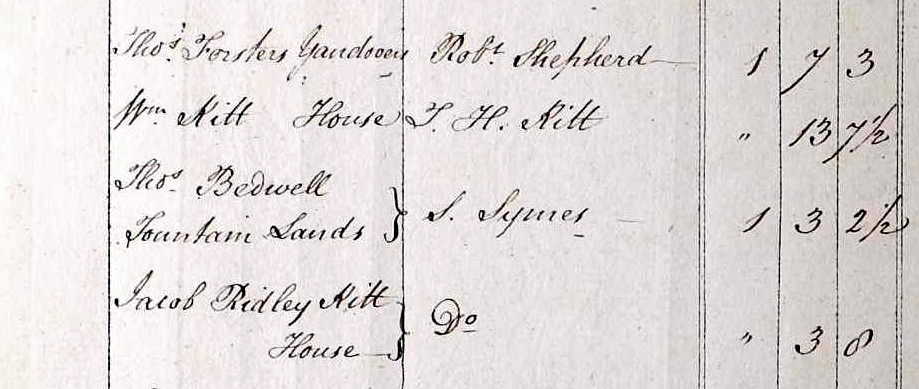 Thos. Forsters Yandovers Robt. Shepherd 1 7 3
Wm. Kitt House T. H. Kitt " 13 7½
Thos. Bedwell
Fountain Lands } S. Symes 1 3 2½
Jacob Ridley Kitt
House } Do " 3 8